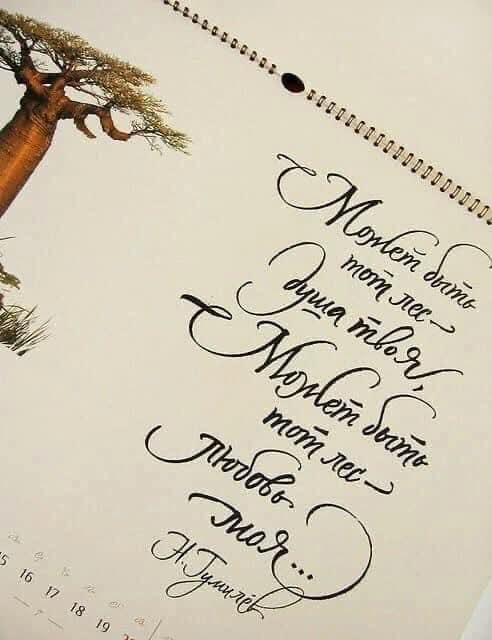 Может быть
тот лес –
душа твоя,
Может быть
тот лес –
любовь
моя...
Н. Гумилёв
15 16 17 18 19
7